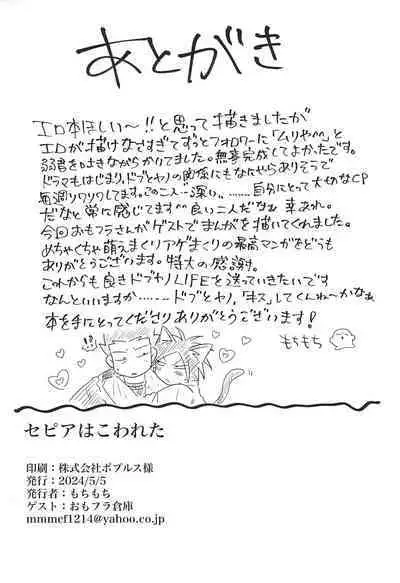 あとがき
エロ本ほしい〜!!と思って描きましたが
エロが描けなさすぎてずっとフォロワーに「ムリや^^」と
弱音を吐きながらかいてました。無事完成してよかったです。
ドラマもはじまり、ドブとヤノの関係にもなにやらありそうで
毎週ソワソワしてます。この二人…深い………自分にとって大切なCP
だなと常に感じてます^^良い二人だなぁ 幸あれ。
今回おもフラさんがゲストでまんがを描いてくれました。
めちゃくちゃ萌えまくりアゲまくりの最高マンガをどうも
ありがとうございます。特大の感謝。
これからも良きドブヤノLIFEを送っていきたいです
なんといいますか………ドブとヤノ、「キス」してくんね〜かなぁ
本を手にとってくださりありがとうございます!
もちもち
セピアはこわれた
印刷:株式会社ポプルス様
発行:2024/5/5
発行者:もちもち
ゲスト:おもフラ倉庫
mmmef1214@yahoo.co.jp